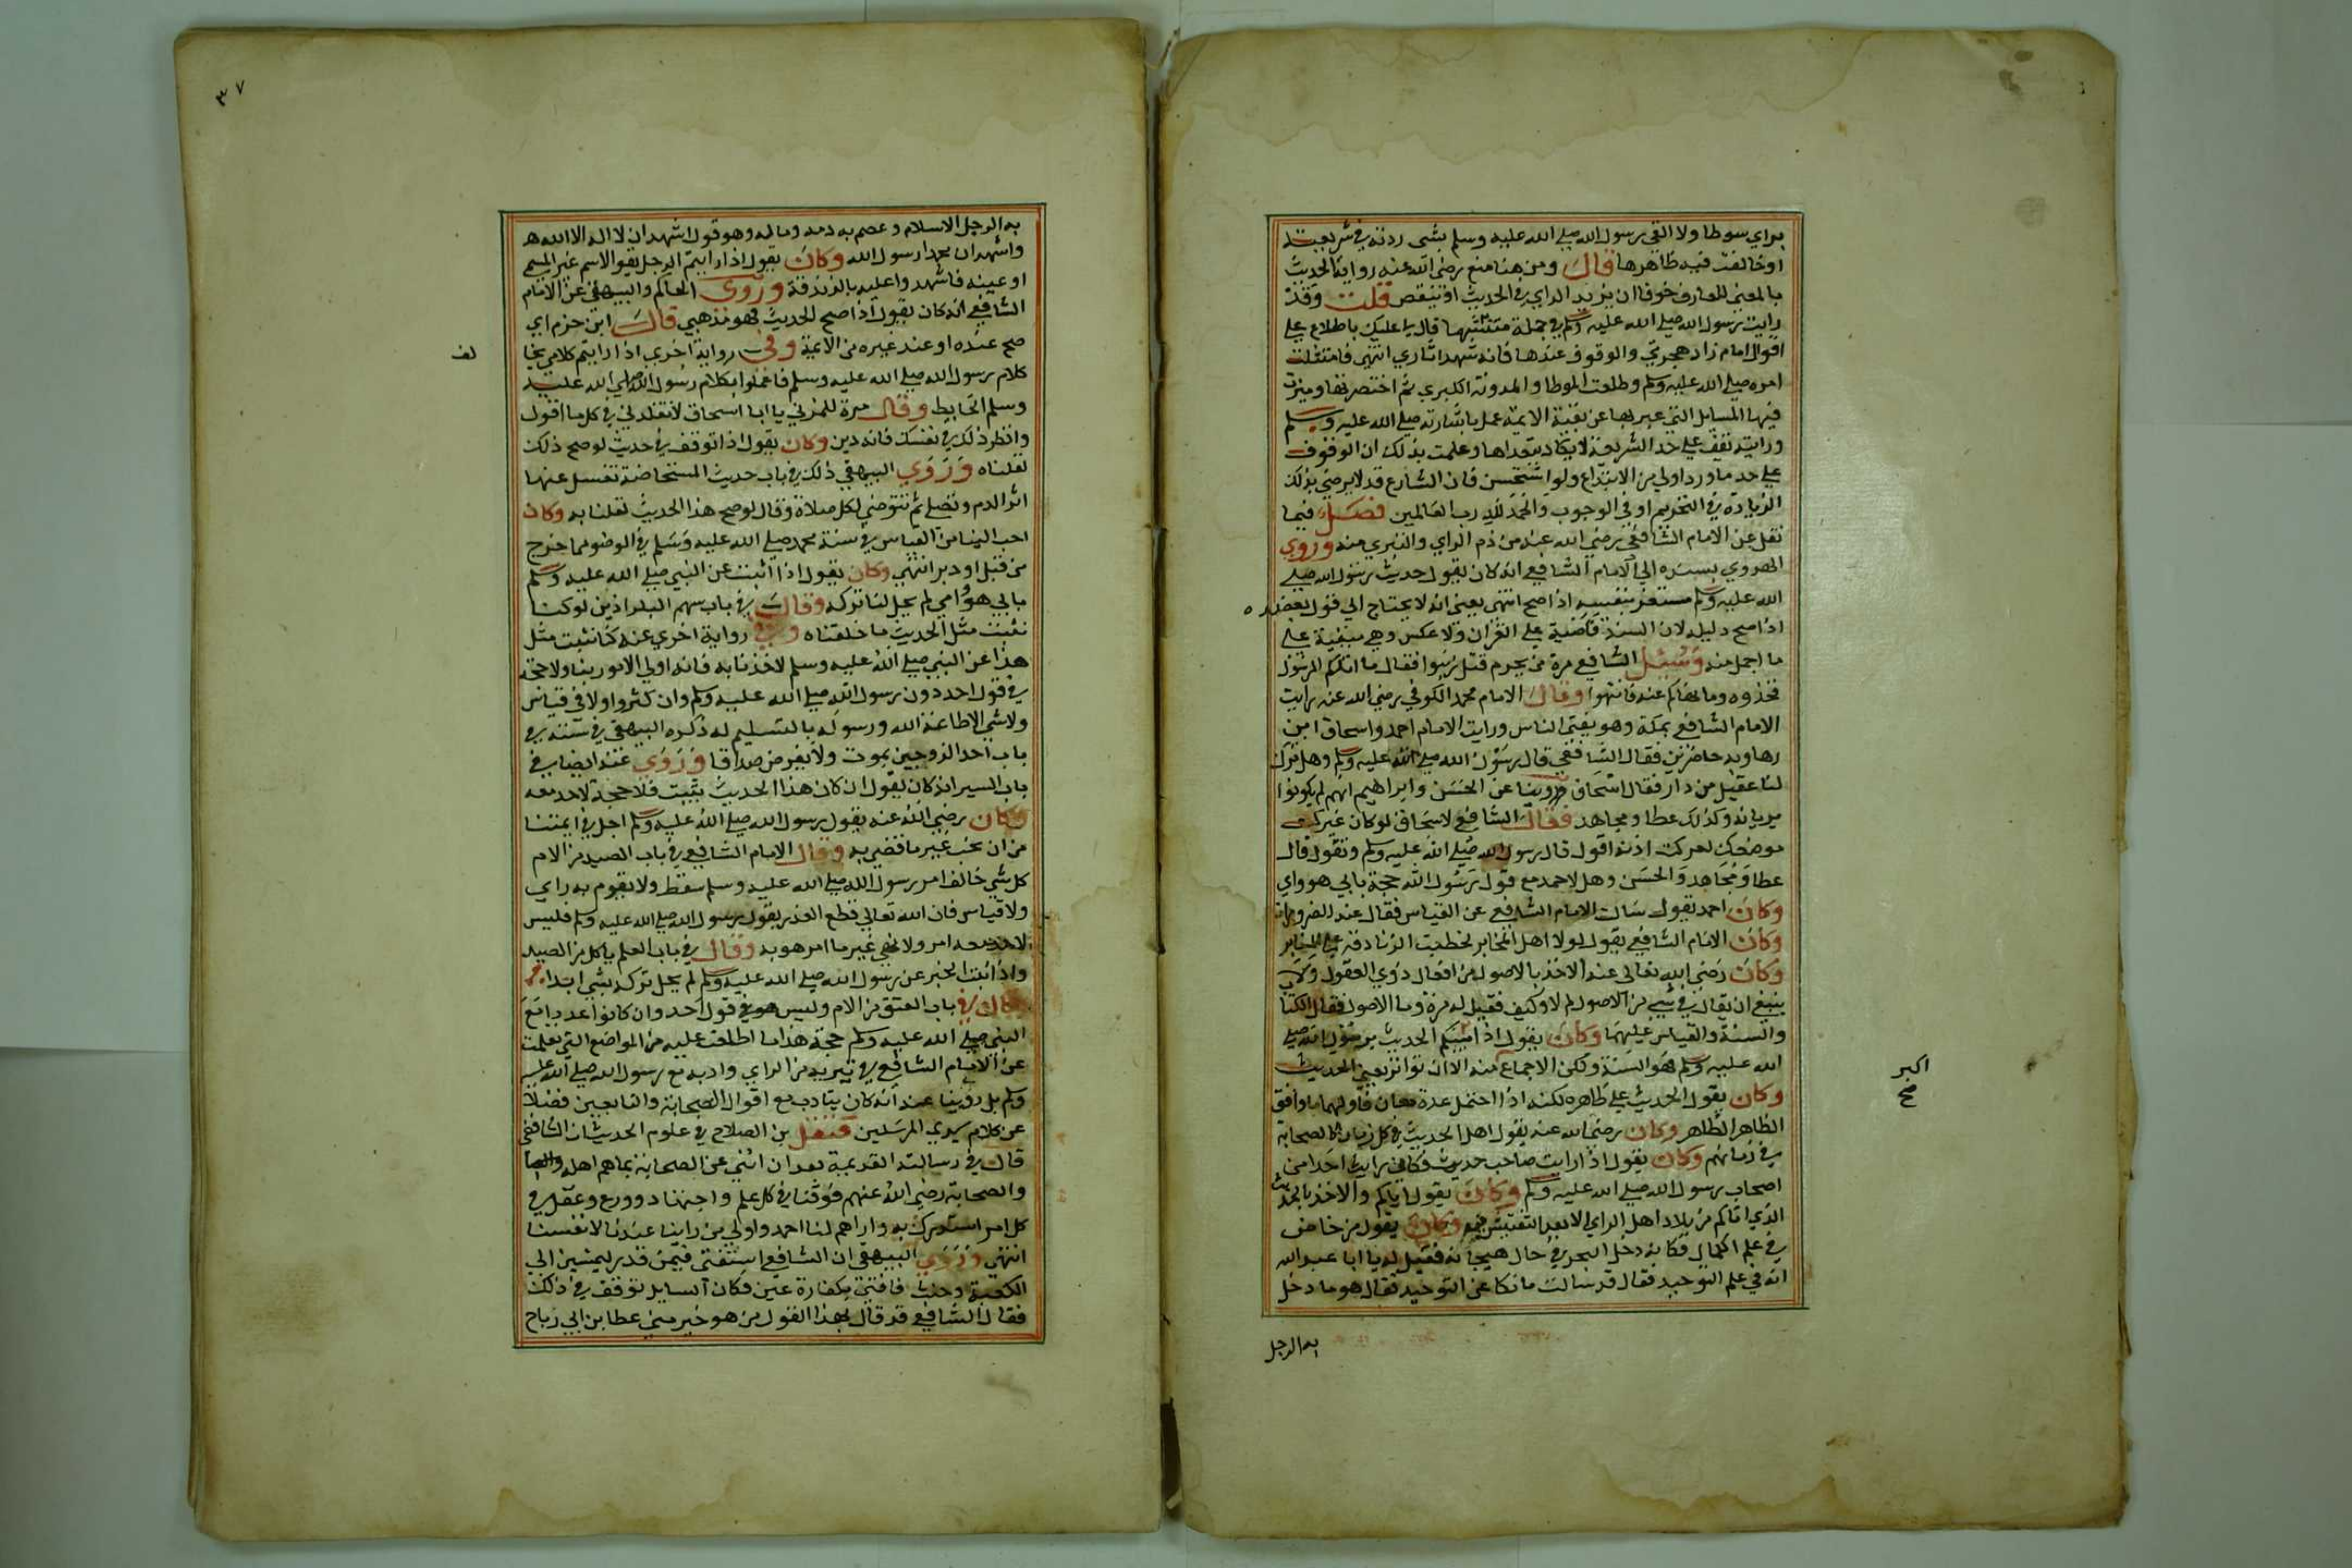 براي سوطا ولا القي رسول الله صلى الله عليه وسلم بشى ردته في شريعته
اوخالفت فيه ظاهرها قال ومن هنا منع رضى الله عنه رواية الحديث
بالمعني للعارف خوفا ان يزيد الراي في الحديث او ينقص قلت وقد
رايت رسول الله صلى الله عليه وسلم في جملة مبشرة قال لي عليك باطلاع على
اقوال امام زاد هجرتي والوقوف عندها فانه شهد اثاري انتهى فامتثلت
امره صلى الله عليه وسلم وطلعت الموطا والمدونة الكبري ثم اختصرتها وميزت
فيها المسايل التي عبر بها عن بقية الايمة عملا باشارته صلى الله عليه وسلم
ورايته يقف على حد الشريعة لا يكاد يتعداها وعلمت بذلك ان الوقوف
على حد ما ورد اولي من الابتداع ولو استحسن فان الشارع قد لا يرضي بذلك
الزيادة في التحريم او في الوجوب والحمد لله رب العالمين فصل فيما
نقل عن الامام الشافعي رضي الله عنه من ذم الراي والتبري منه وروي
الهروي بسنده الي الامام الشافعي انه كان يقول حديث رسول الله صلى
الله عليه وسلم مستغن بنفسه اذا صح انتهى يعني انه لا يحتاج الي قول يعضده
اذا صح دليله لان السنة قاضية على القران ولا عكس وهي مبينة على
ما اجمل منه وسيل الشافعي مرة من محرم قتل زنبورا فقال ما اتاكم الرسول
فخذوه وما نهاكم عنه فانتهوا وقال الامام محمد الكوفي رضي الله عنه رايت
الامام الشافعي بمكة وهو يفتي الناس ورايت الامام احمد واسحاق ابن
رهاويه حاضرين فقال الشافعي قال رسول الله صلى الله عليه وسلم وهل ترك
لنا عقيل من دار فقال اسحاق روينا عن الحسن وابراهيم انهم لم يكونوا
يريانه وكذلك عطا ومجاهد فقال الشافعي لاسحاق لو كان غيرك
موضعك لعركت اذنه اقول قال رسول الله صلى الله عليه وسلم وتقول قال
عطا ومجاهد والحسن وهل لاحد مع قول رسول الله حجة بابي هو وامي
وكان احمد يقول سالت الامام الشافعي عن القياس فقال عند الضرورات
وكان الامام الشافعي يقول لولا اهل المحابر لخطبت الزنادقة على المنابر
وكان رضي الله تعالى عنه الاخذ بالاصول من افعال ذوي العقول ولا
ينبغي ان يقال في شي من الاصول لم لا وكيف فقيل له مرة وما الاصول فقال الكتاب
والسنة والقياس عليهما وكان يقول اذا اتيتكم الحديث من رسول الله صلى
الله عليه وسلم فهو السنة ولكن الاجماع منه الا ان تواتر يعني الحديث
وكان يقول الحديث على ظاهره لكنه اذا احتمل عدة معان فاولها ما وافق
الظاهر الظاهر وكان رضى الله عنه يقول اهل الحديث في كل زمان كالصحابة
في زمانهم وكان يقول اذا رايت صاحب حديث فكاني رايت احدا من
اصحاب رسول الله صلى الله عليه وسلم وكان يقول اياكم والاخذ بالحديث
الذي اتاكم من بلاد اهل الراي الا بعد التفتيش فيه وكان يقول من خاض
في علم الكلام فكانه دخل البحر في حال هيجانه فقيل له يا ابا عبد الله
انه في علم التوحيد فقال قد سالت مالكا عن التوحيد فقال هو ما دخل
به الرجل
اكبر
صح
٣٧
به الرجل الاسلام وعصم به دمه وماله وهو قول اشهد ان لا اله الا الله
واشهد ان محمدا رسول الله وكان يقول اذا رايتم الرجل يقول الاسم غير المسمي
او عينه فاشهدوا عليه بالزندقة وروى الحاكم والبيهقي عن الامام
الشافعي انه كان يقول اذا صح الحديث فهو مذهبي قال ابن حزم اي
صح عنده او عند غيره من الايمة وفى رواية اخرى اذا رايتم كلامي يخا
لف
كلام رسول الله صلى الله عليه وسلم فاعملوا بكلام رسول الله صلى الله عليه
وسلم الحايط وقال مرة للمزني يا ابا اسحاق لا تقلدني في كل ما اقول
وانظر ذلك في نفسك فانه دين وكان يقول اذا توقف في حديث لو صح ذلك
لقلناه وروي البيهقي ذلك في باب حديث المستحاضة تغسل عنها
اثر الدم وتصلي ثم تتوضي لكل صلاة وقال لو صح هذا الحديث لقلنا به وكان
احب الينا من القياس في سنة محمد صلى الله عليه وسلم في الوضو مما خرج
من قبل او دبر انتهي وكان يقول اذا اثبت عن النبي صلى الله عليه وسلم
بابي هو وامي لم يحل لنا تركه وقال في باب سهم البراذين لو كنا
نثبت مثل الحديث ما خلفناه وفي رواية اخري عنه كنا نثبت مثل
هذا عن النبي صلى الله عليه وسلم لاخذنا به فانه اولي الامور بنا ولا حجة
في قول احد دون رسول الله صلى الله عليه وسلم وان كثروا ولا في قياس
ولا شي الا طاعة الله ورسوله بالتسليم له ذكره البيهقي في سننه في
باب احد الزوجين يموت ولا يفرض صداقا وروي عنه ايضا في
باب السير انه كان يقول ان كان هذا الحديث يثبت فلا حجة لاحد معه
وكان رضي الله عنه يقول رسول الله صلى الله عليه وسلم اجل في اعيننا
من ان نحب غير ما قضي به وقال الامام الشافعي في باب الصيد من الام
كل شي خالف امر رسول الله صلى الله عليه وسلم سقط ولا يقوم به راي
ولا قياس فان الله تعالي قطع العذر بقول رسول الله صلى الله عليه وسلم فليس
لاحد معه امر ولا نهي غير ما امر هو به وقال في باب العلم ياكل من الصيد
واذا ثبت الخبر عن رسول الله صلى الله عليه وسلم لم يحل تركه بشي ابدا
وقال في باب العتق من الام وليس هو في قول احد وان كانوا عددا مع
النبي صلى الله عليه وسلم حجة هذا ما اطلعت عليه من المواضع التي نقلت
عن الامام الشافعي في تبريه من الراي وادبه مع رسول الله صلى الله عليه
وسلم بل روينا عنه انه كان يتادب مع اقوال الصحابة والتابعين فضلا
عن كلام سيد المرسلين فنقل بن الصلاح في علوم الحديث ان الشافعي
قال في رسالته القديمة بعد ان اثني عن الصحابة بما هم اهله
والصحابة رضي الله عنهم فوقنا في كل علم واجتهاد وورع وعقل في
كل امر استدرك به واراهم لنا احمد واولي من راينا عندنا لانفسنا
انتهي وروي البيهقي ان الشافعي استفتى فيمن نذر ليمشين الي
الكعبة وحنث فافتي بكفارة يمين فكان السايل توقف في ذلك
فقال الشافعي قد قال بهذا القول من هو خير مني عطا بن ابي رباح